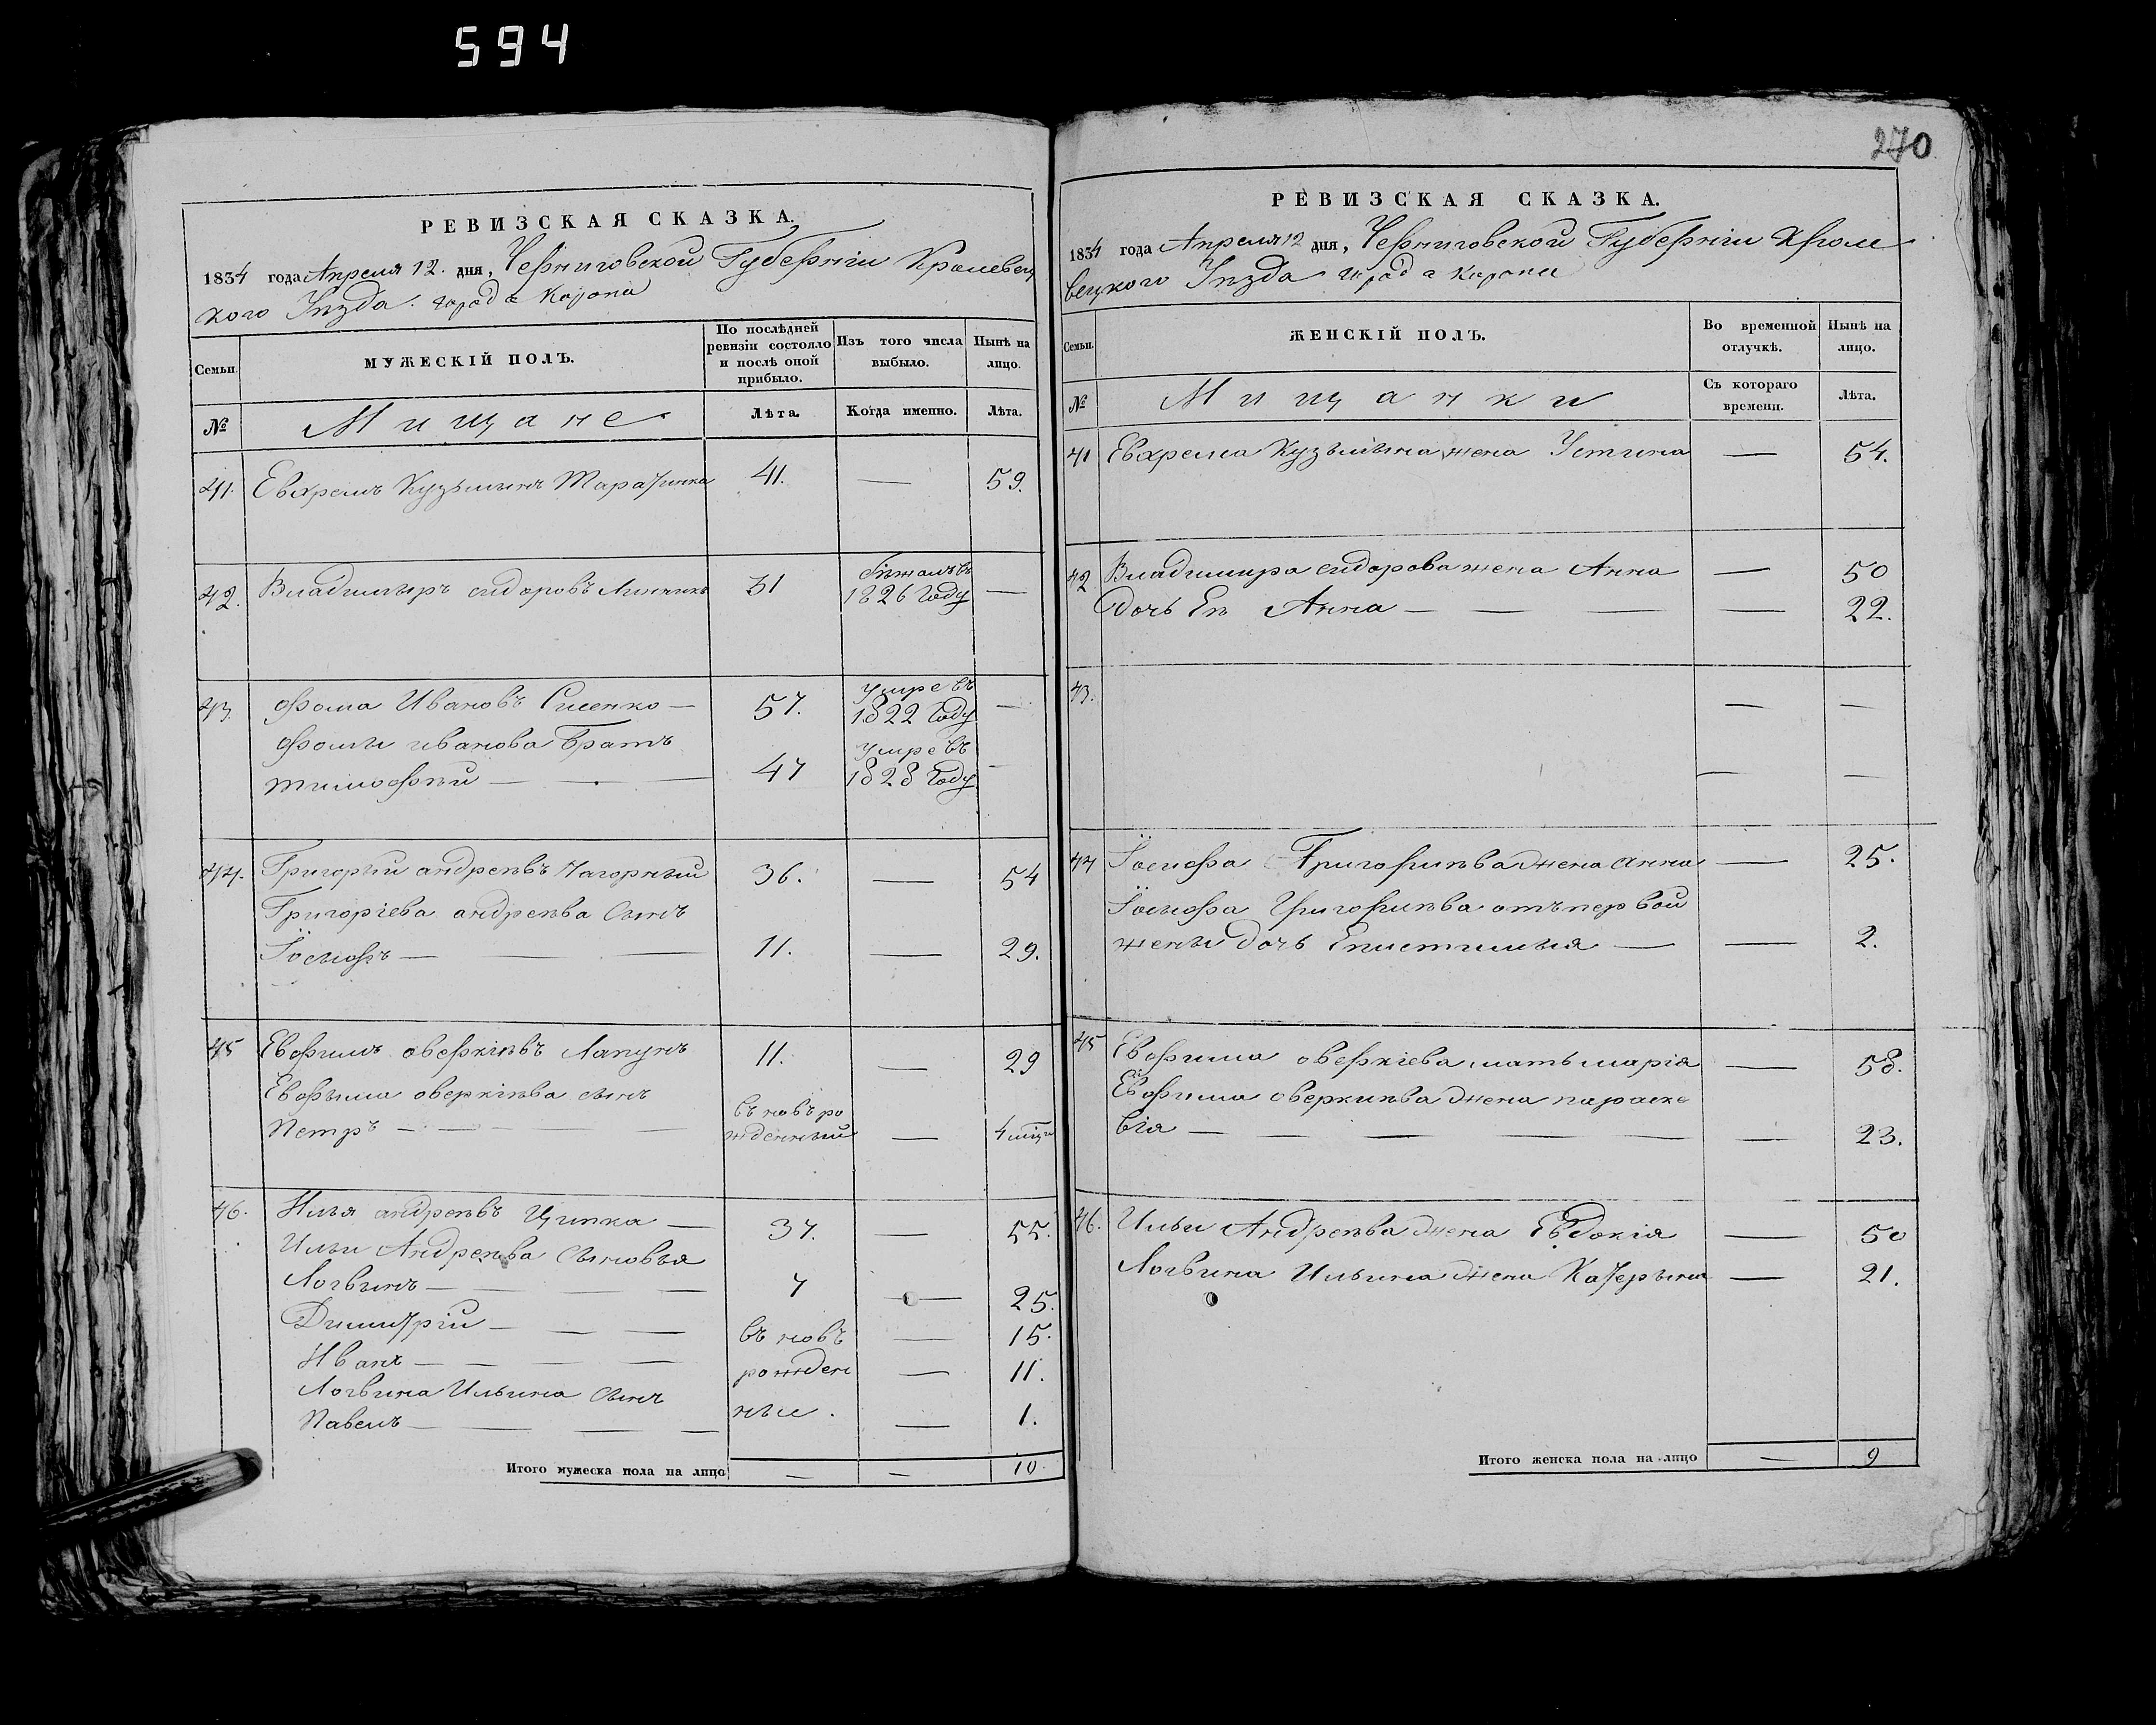 594
270
РЕВИЗСКАЯ СКАЗКА.
1834 года Апреля 12. дня, Черниговской Губернiи Кролевец
кого Уѣзда. города Коропа
Семьи.
МУЖЕСКІЙ ПОЛЪ.
По послѣдней ревизіи состояло и послѣ оной прибыло.
Изъ того числа выбыло.
Нынѣ на лицо.
№
Мищане
Лѣта.
Когда именно.
Лѣта.
41. Евхремъ Кузьминъ 41. — 59.
42. Владимиръ сидоровъ Линникъ 31 бѣжалъ въ 1826 Году —
43. Фома Ивановъ 57. умре въ 1822 Году —
Фомы иванова братъ
тимофѣй — — — 47 умре въ 1828 Году —
44. Григорий андреевъ Нагорный 36. — 54
Григоріева андреева сынъ
Іосифъ — — — 11. — 29.
45 Евфимъ оверкіевъ Лапунъ 11. — 29
Евфыма оверкіева сынъ
Петръ — — — въ новь рожденный — 4 мцы
46. Илья андреевъ Цыпка — 37. — 55.
Ильи Андреева сыновья
Логвынъ — — — 7 — 25.
Димитрій — — — въ новь — 15.
Иванъ — — — рожден — 11.
Логвина Ильина сынъ
Павелъ — — — ные. — 1.
Итого мужеска пола на лицо — — 10.
РЕВИЗСКАЯ СКАЗКА.
1834 года Апреля 12 дня, Черниговской Губернiи Кроле
вецкого Уѣзда города Коропа
Семьи.
ЖЕНСКІЙ ПОЛЪ.
Во временной отлучкѣ.
Нынѣ на лицо.
№
Мищанки
Съ котораго времени.
Лѣта.
41 Евхрема Кузьмына жена Устина — 54.
42 Владимира сидорова жена Анна — 50
дочь Ея Анна — — — — 22.
43. — —
— —
44 Іосифа Григориева жена анна — 25.
Іосифа Григориева отъ первой
жены дочь Епистимыя — — 2.
45 Евфима оверкіева мать марія — 58.
Евфима оверкиева жена параске
вія — — — — — 23.
46. Ильи Андреева жена Евдокія — 50
Логвина Ильина жена Катерына — 21.
Итого женска пола на лицо — 9